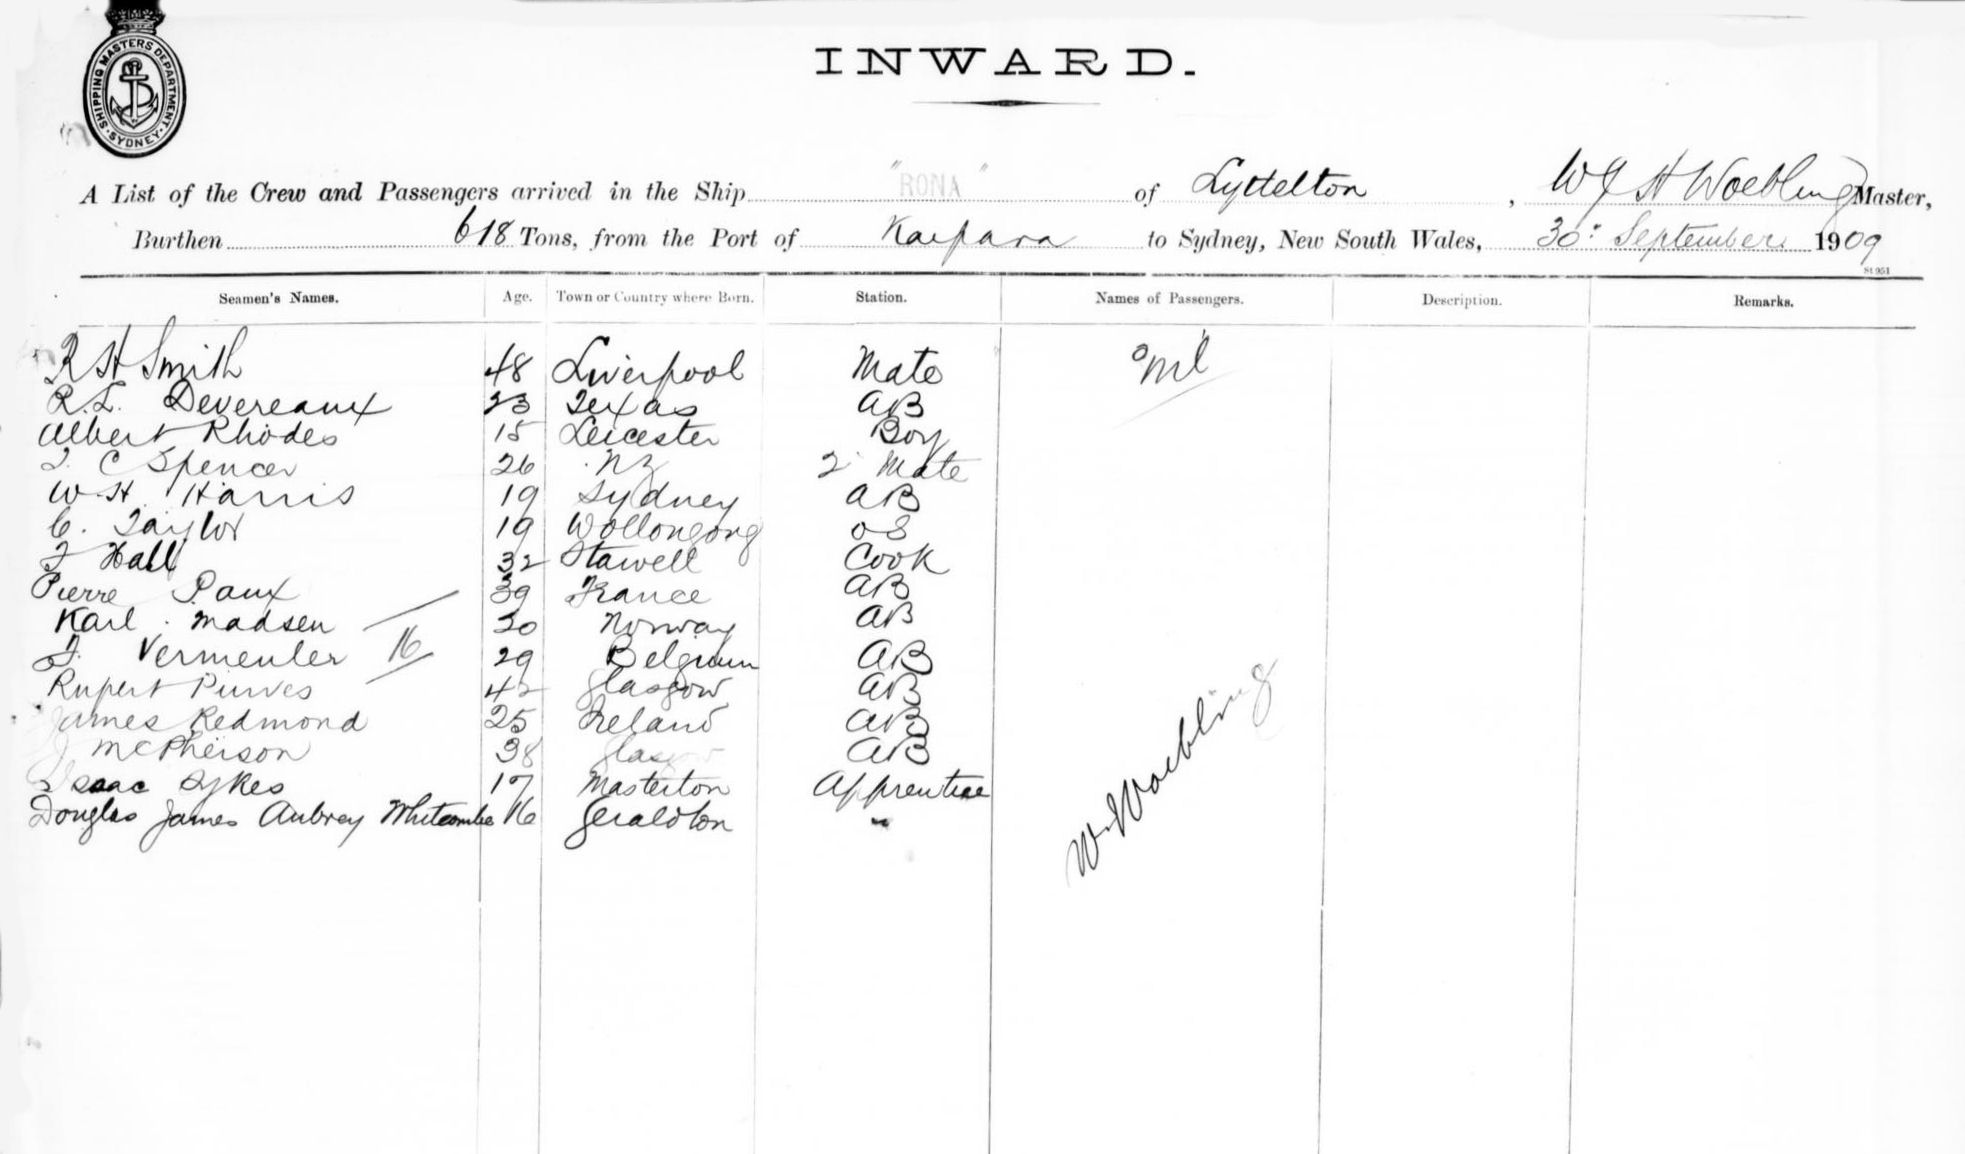 SHIPPING MASTERS DEPARTMENT. SYDNEY.
INWARD.
A List of the Crew and Passengers arrived in the Ship "RONA" of Lyttelton, W J H Woebling Master,
Burthen 618 Tons, from the Port of Kaipara to Sydney, New South Wales, 30: September 1909
St 951
Seamen's Names. Age. Town or Country where Born. Station. Names of Passengers. Description. Remarks.
R H Smith 48 Liverpool Mate nil
R. L. Devereaux 23 Texas AB
Albert Rhodes 15 Leicester Boy
C Spencer 26 NZ 2 Mate
W. H. Harris 19 Sydney AB
C. Taylor 19 Wollongong OS
Hall 32 Stawell Cook
Pierre Paux 39 France AB
Karl Madsen 30 Norway AB
Vermeuler 16 29 Belgium AB
Rupert Purves 42 Glasgow AB
James Redmond 25 Ireland AB
J McPherson 38 Glasgow AB
Isaac Sykes 17 Masterton Apprentice
Douglas James Aubrey Whitcombe 16 Geraldton "
W Woebling